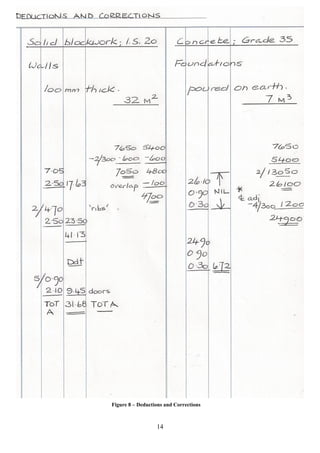 DEDUCTIONS AND CORRECTIONS
Solid blockwork; I.S. 20
Walls
100 mm thick.
32 M²
7650 5400
-2/300 -600 -600
7.05 7050 4800
2.50 17.63 overlap -100
4700
2/4.70 'ribs'
2.50 23.50
41.13
Ddt
5/0.90
2.10 9.45 doors
TOT 31.68 TOT A
A
Concrete; Grade 35
Foundations
poured on earth.
7 M³
7650
5400
2/13050
26.10 ↑ 26100
0.90 NIL * ȼ adj
0.30 ↓ -4/300 1200
24900
24.90
0.90
0.30 6.72
Figure 8 – Deductions and Corrections
14